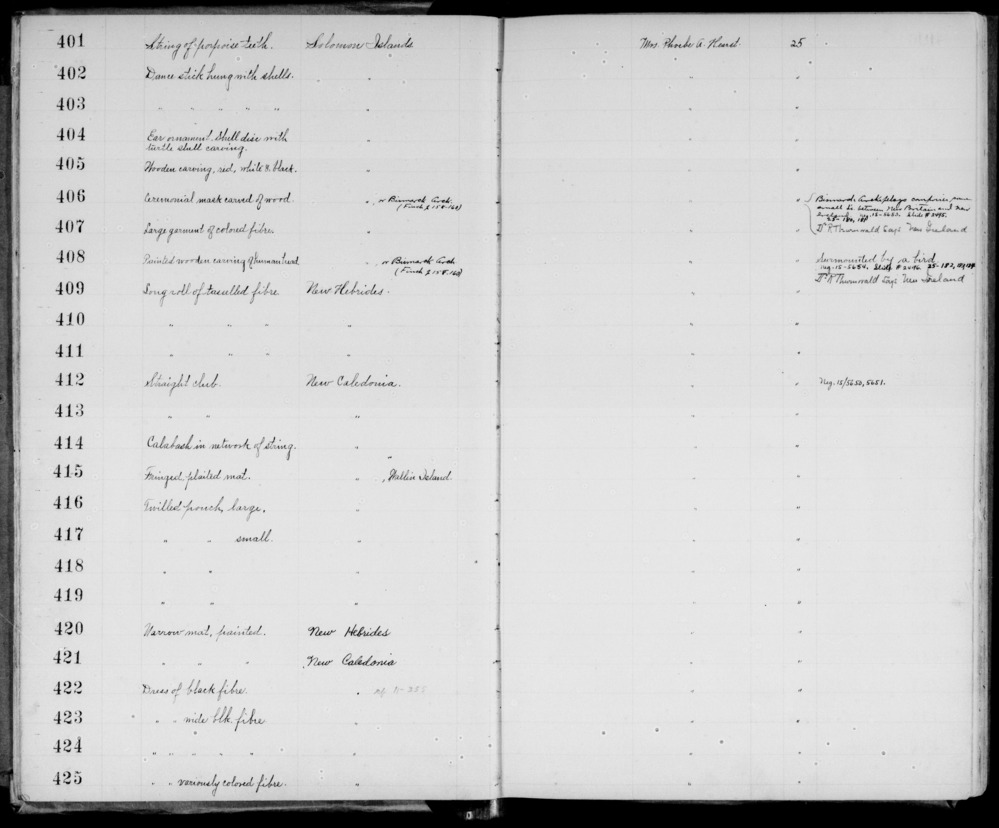 401 String of porpoise teeth. Solomon Islands Mrs. Phoebe A. Hearst. 25
402 Dance stick hung with shells. " " "
403 " " " " " " " "
404 Ear ornament. Shell disc with " " "
turtle shell carving.
405 Wooden carving, red, white & black. " " "
406 Ceremonial mask carved of wood " , or Bismarck Arch. " " Bismarck Archipelago comprises
(Finsch p 15 small is. between New Britain and New
Ireland. Neg. 15-5653. Slide # 2495.
407 Large garment of colored fibre. " " " Dr. R. Thurnwald says New Ireland
408 Painted wooden carving of human head " , or Bismarck Arch. " " Surmounted by a bird
(Finsch p 15 Neg. 15-5654. Slide # 2496. 25-182,
409 Long roll of tasselled fibre. New Hebrides. " " Dr. R. Thurnwald says New Ireland
410 " " " " " "
411 " " " " " "
412 Straight club. New Caledonia. " " Neg. 15/5650, 5651.
413 " " " " "
414 Calabash in network of string. " " "
415 Fringed plaited mat. " , Wallis Island. " "
416 Twilled pouch, large. " " "
417 " " small. " " "
418 " " " " "
419 " " " " "
420 Narrow mat, painted. New Hebrides " "
421 " " " New Caledonia " "
422 Dress of black fibre. " " "
423 " " wide blk. fibre " " "
424 " " " " " " " "
425 " " variously colored fibre. " " "